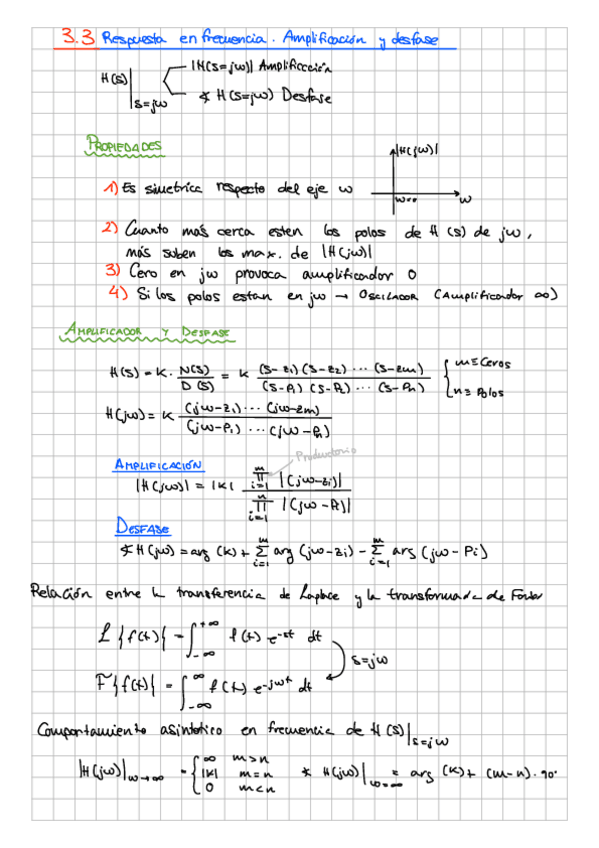 3.3 Respuesta en frecuencia. Amplificación y desfase
H(s)|s=jω
|H(s=jω)| Amplificación
∡ H(s=jω) Desfase
PROPIEDADES
|H(jω)|
1) Es simetrica respecto del eje ω
ω=0
ω
2) Cuanto más cerca esten los polos de H(s) de jω,
más suben los max. de |H(jω)|
3) Cero en jω provoca amplificador 0
4) Si los polos estan en jω → OSCILADOR (Amplificador ∞)
AMPLIFICADOR Y DESFASE
H(s) = K · N(s)/D(s) = K (s-z1)(s-z2) ··· (s-zm) / (s-P1)(s-P2) ··· (s-Pn) { m≡Ceros
n≡Polos
H(jω) = K (jω-z1) ··· (jω-zm) / (jω-P1) ··· (jω-Pn)
Productorio
AMPLIFICACIÓN
|H(jω)| = |K| ∏_{i=1}^{m} |(jω-zi)| / ∏_{i=1}^{n} |(jω-Pi)|
DESFASE
∡ H(jω) = arg (K) + Σ_{i=1}^{m} arg (jω-zi) - Σ_{i=1}^{m} arg (jω-Pi)
Relación entre la transferencia de Laplace y la transformada de Fourier
L{f(t)} = ∫_{-∞}^{+∞} f(t) e^{-st} dt
s=jω
F{f(t)} = ∫_{-∞}^{∞} f(t) e^{-jωt} dt
Comportamiento asintotico en frecuencia de H(s)|s=jω
|H(jω)|ω→∞ = { ∞ m>n
|K| m=n
0 m<n
∡ H(jω)|ω=∞ = arg (K) + (m-n)·90°